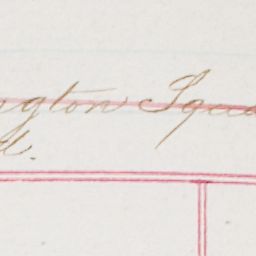 ngton Squa
d.